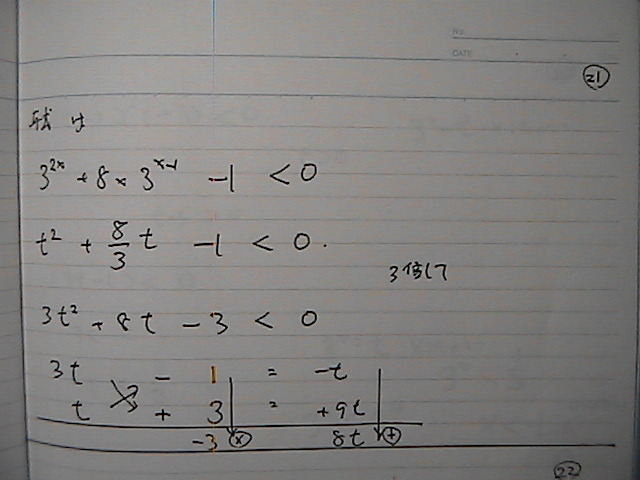 No.
DATE
㉑
与式は
3^{2x} + 8 × 3^{x-1} - 1 < 0
t² + \frac{8}{3} t - 1 < 0.
3倍して
3t² + 8t - 3 < 0
3t - 1 = -t
t + 3 = +9t
-3 ⊗ 8t ⊕
㉒